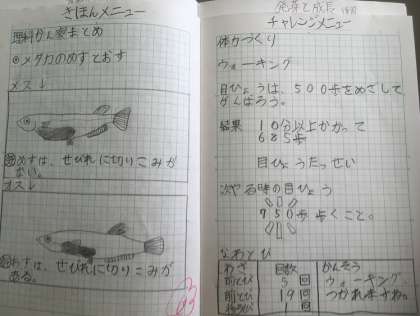 きほんメニュー
理科かん察まとめ
◎メダカのめすとおす
メス↓
めすは、せびれに切りこみが
ない。
オス↓
おすは、せびれに切りこみが
ある。
発芽と成長
チャレンジメニュー
体力づくり
ウォーキング
目ひょうは、500歩をめざして
がんばろう。
結果 10分以上かかって
685歩
目ひょうたっせい
次やる時の目ひょう
750歩歩くこと。
なわとび
わざ 回数 かんそう
前とび 5回 ウォーキング
前とび 19回 つかれますね。
1回